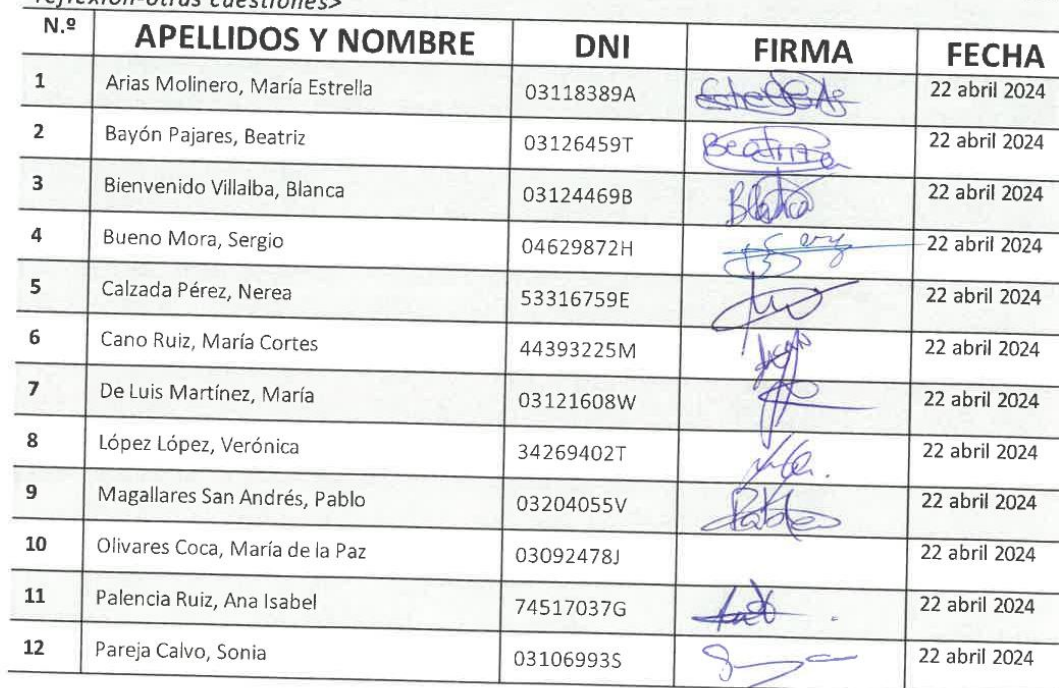 reflexión-otras cuestiones>
N.º APELLIDOS Y NOMBRE DNI FIRMA FECHA
1 Arias Molinero, María Estrella 03118389A 22 abril 2024
2 Bayón Pajares, Beatriz 03126459T Beatriz 22 abril 2024
3 Bienvenido Villalba, Blanca 03124469B Blanca 22 abril 2024
4 Bueno Mora, Sergio 04629872H 22 abril 2024
5 Calzada Pérez, Nerea 53316759E 22 abril 2024
6 Cano Ruiz, María Cortes 44393225M 22 abril 2024
7 De Luis Martínez, María 03121608W 22 abril 2024
8 López López, Verónica 34269402T 22 abril 2024
9 Magallares San Andrés, Pablo 03204055V Pablo 22 abril 2024
10 Olivares Coca, María de la Paz 03092478J 22 abril 2024
11 Palencia Ruiz, Ana Isabel 74517037G 22 abril 2024
12 Pareja Calvo, Sonia 03106993S 22 abril 2024